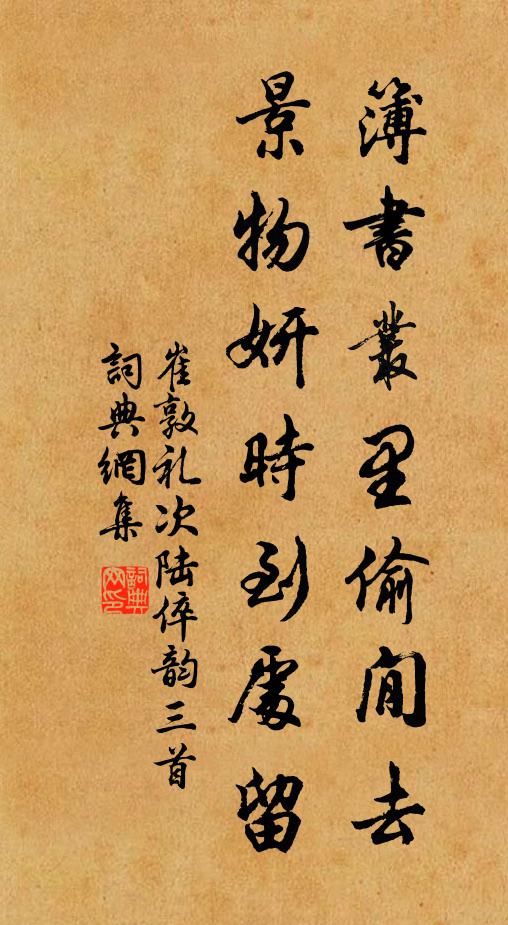 簿書叢里偷閒去
景物妍時到處留
崔敦礼次陆倅韵三首
詞典網集
詞典网印